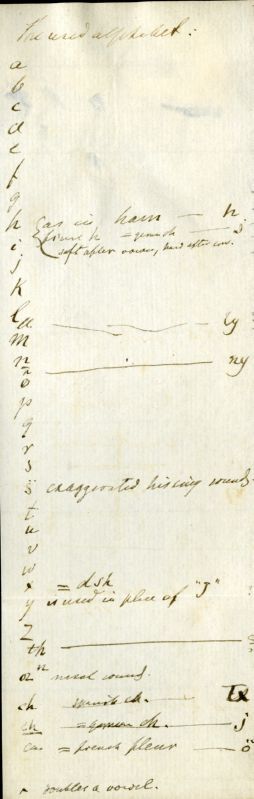 The used alphabet:
a
b
c
d
e
f
g
h as in ham — h
= german ch —
i soft after vowel, hard after con.
j
k
l — ly
m
n — ny
o
p
q
r
s
s̈ exaggerated hissing sound
t
u
v
w
x = dsh
y is used in place of "J"
Z
th
nasal sound.
ch ch. — Tx
ch = german ch. — j
= french fleur — ö
^ doubles a vowel.